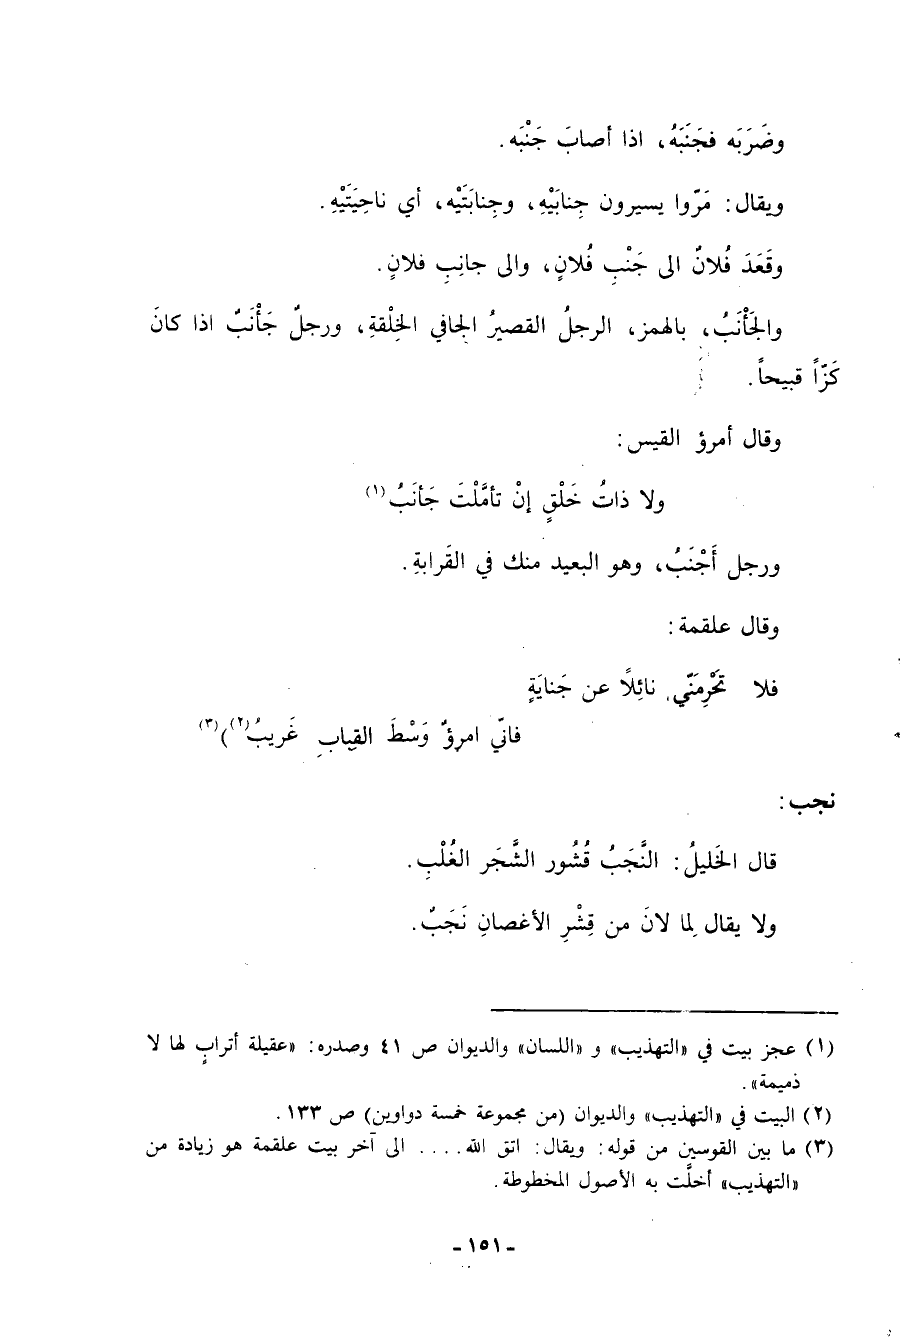 وضَرَبَه فجَنَبَهُ، اذا أصابَ جَنْبَه.
ويقال: مَرّوا يسيرون جِنابَيْهِ، وجِنابَتَيْه، أي ناحِيَتَيْهِ.
وقَعَدَ فُلانٌ الى جَنْبِ فُلانٍ، والى جانِبِ فلانٍ.
والجَأْنَبُ، بالهمز، الرجلُ القصيرُ الجافي الخِلْقةِ، ورجلٌ جَأْنَبٌ اذا كانَ
كَزّاً قبيحاً.
وقال أمرؤ القيس:
ولا ذاتُ خَلْقٍ إنْ تأمَّلْتَ جَأنَبُ(١)
ورجل أَجْنَبُ، وهو البعيد منك في القَرابةِ.
وقال علقمة:
فلا تَحْرِمَنّي نائِلًا عن جَنايَةٍ
فانّي امرؤٌ وَسْطَ القِبابِ غَريبُ(٢))(٣)
نجب:
قال الخَليلُ: النَّجَبُ قُشُور الشَّجَر الغُلْبِ.
ولا يقال لِما لانَ من قِشْرِ الأغصانِ نَجَبٌ.
(١) عجز بيت في «التهذيب» و «اللسان» والديوان ص ٤١ وصدره: «عقيلة أترابٍ لها لا
ذميمة».
(٢) البيت في «التهذيب» والديوان (من مجموعة خمسة دواوين) ص ١٣٣.
(٣) ما بين القوسين من قوله: ويقال: اتق الله.... الى آخر بيت علقمة هو زيادة من
«التهذيب» أخلَّت به الأصول المخطوطة.
- ١٥١ -